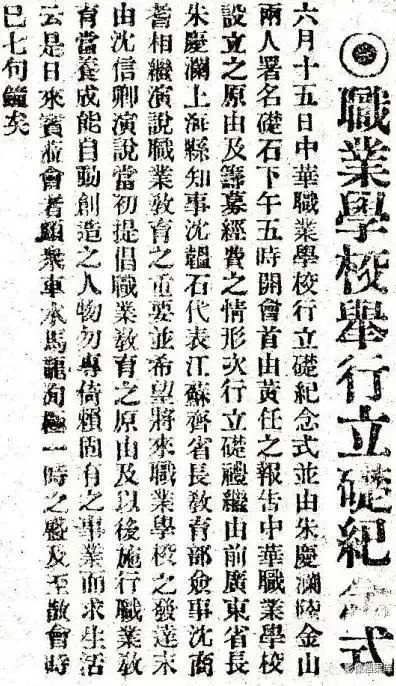 ◉職業學校舉行立礎紀念式
六月十五日中華職業學校行立礎紀念式並由朱慶瀾陸金山
兩人署名礎石下午五時開會首由黃任之報告中華職業學校
設立之原由及籌募經費之情形次行立礎禮繼由前廣東省長
朱慶瀾上海縣知事沈韞石代表江蘇齊省長敎育部僉事沈商
耆相繼演說職業敎育之重要並希望將來職業學校之發達末
由沈信卿演說當初提倡職業敎育之原由及以後施行職業敎
育當養成能自動創造之人物勿專倚賴固有之事業而求生活
云是日來賓蒞會者頗衆車水馬龍洵極一時之盛及至散會時
已七句鐘矣